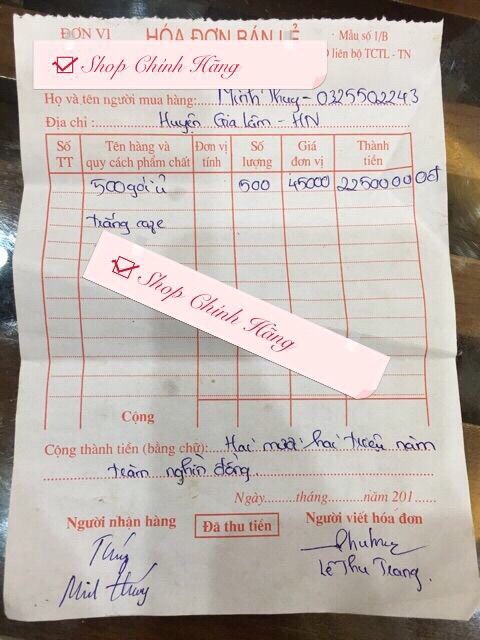 ĐƠN VỊ HÓA ĐƠN BÁN LẺ Mẫu số 1/B
liên bộ TCTL - TN
Shop Chính Hãng
Họ và tên người mua hàng: Minh Thuy - 0325502243
Địa chỉ : Huyện Gia Lâm - HN
Số TT Tên hàng và quy cách phẩm chất Đơn vị tính Số lượng Giá đơn vị Thành tiền
500 gói ủ 500 45000 22500000đ
trắng
Shop Chính Hãng
Cộng
Cộng thành tiền (bằng chữ): Hai mươi hai triệu năm
trăm nghìn đồng.
Ngày......tháng.........năm 201....
Người nhận hàng Đã thu tiền Người viết hóa đơn
Lê Thu Trang.